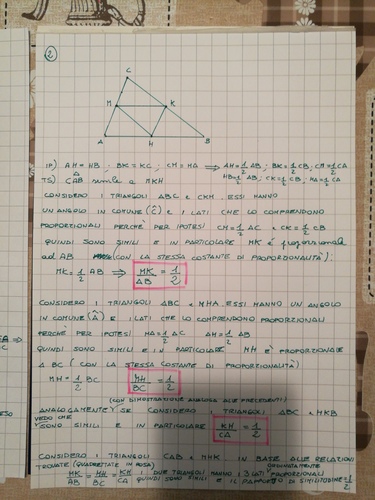 2
C
M K
A H B
IP) AH=HB ; BK=KC ; CM=MA ⇒ AH=1/2 AB ; BK=1/2 CB, CM=1/2 CA
HB=1/2 AB; CK=1/2 CB, MA=1/2 CA
TS) CAB simile a MKH
CONSIDERO I TRIANGOLI ABC e CKM. ESSI HANNO
UN ANGOLO IN COMUNE (Ĉ) E I LATI CHE LO COMPRENDONO
PROPORZIONALI PERCHÉ PER IPOTESI CM=1/2 AC e CK=1/2 CB
QUINDI SONO SIMILI E IN PARTICOLARE MK è proporzionale
ad AB (CON LA STESSA COSTANTE DI PROPORZIONALITÀ):
MK=1/2 AB ⇒ MK/AB = 1/2
CONSIDERO I TRIANGOLI ABC e MHA. ESSI HANNO UN ANGOLO
IN COMUNE (Â) E I LATI CHE LO COMPRENDONO PROPORZIONALI
PERCHÉ PER IPOTESI MA=1/2 AC AH=1/2 AB
QUINDI SONO SIMILI E IN PARTICOLARE MH è PROPORZIONALE
A BC (CON LA STESSA COSTANTE DI PROPORZIONALITÀ)
MH=1/2 BC MH/BC = 1/2
(CON DIMOSTRAZIONE ANALOGA ALLE PRECEDENTI)
ANALOGAMENTE SE CONSIDERO I TRIANGOLI ABC e HKB
VEDO CHE SONO SIMILI E IN PARTICOLARE KH/CA = 1/2
CONSIDERO I TRIANGOLI CAB e MHK. IN BASE ALLE RELAZIONI
TROVATE (QUADRETTATE IN ROSA) ORDINATAMENTE
MK/AB = MH/BC = KH/CA I DUE TRIANGOLI HANNO I 3 LATI PROPORZIONALI
QUINDI SONO SIMILI E IL RAPPORTO DI SIMILITUDINE = 1/2